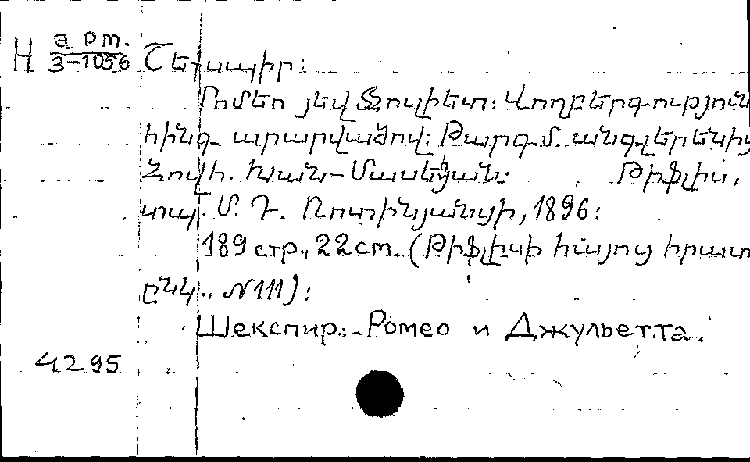 H арт. 3-1056 Շեքսպիր:
Ռոմեո յեվ Ջուլիետ: Վողբերգություն
հինգ արարվածով: Թարգմ. անգլերենից
Հովհ. Խան-Մասեհյան: Թիֆլիս,
տպ. Մ. Դ. Ռոտինյանցի, 1896:
189 стр., 22 cm. (Թիֆլիսի հայոց հրատ.
ընկ., №111):
Шекспир: Ромео и Джульетта.
4295